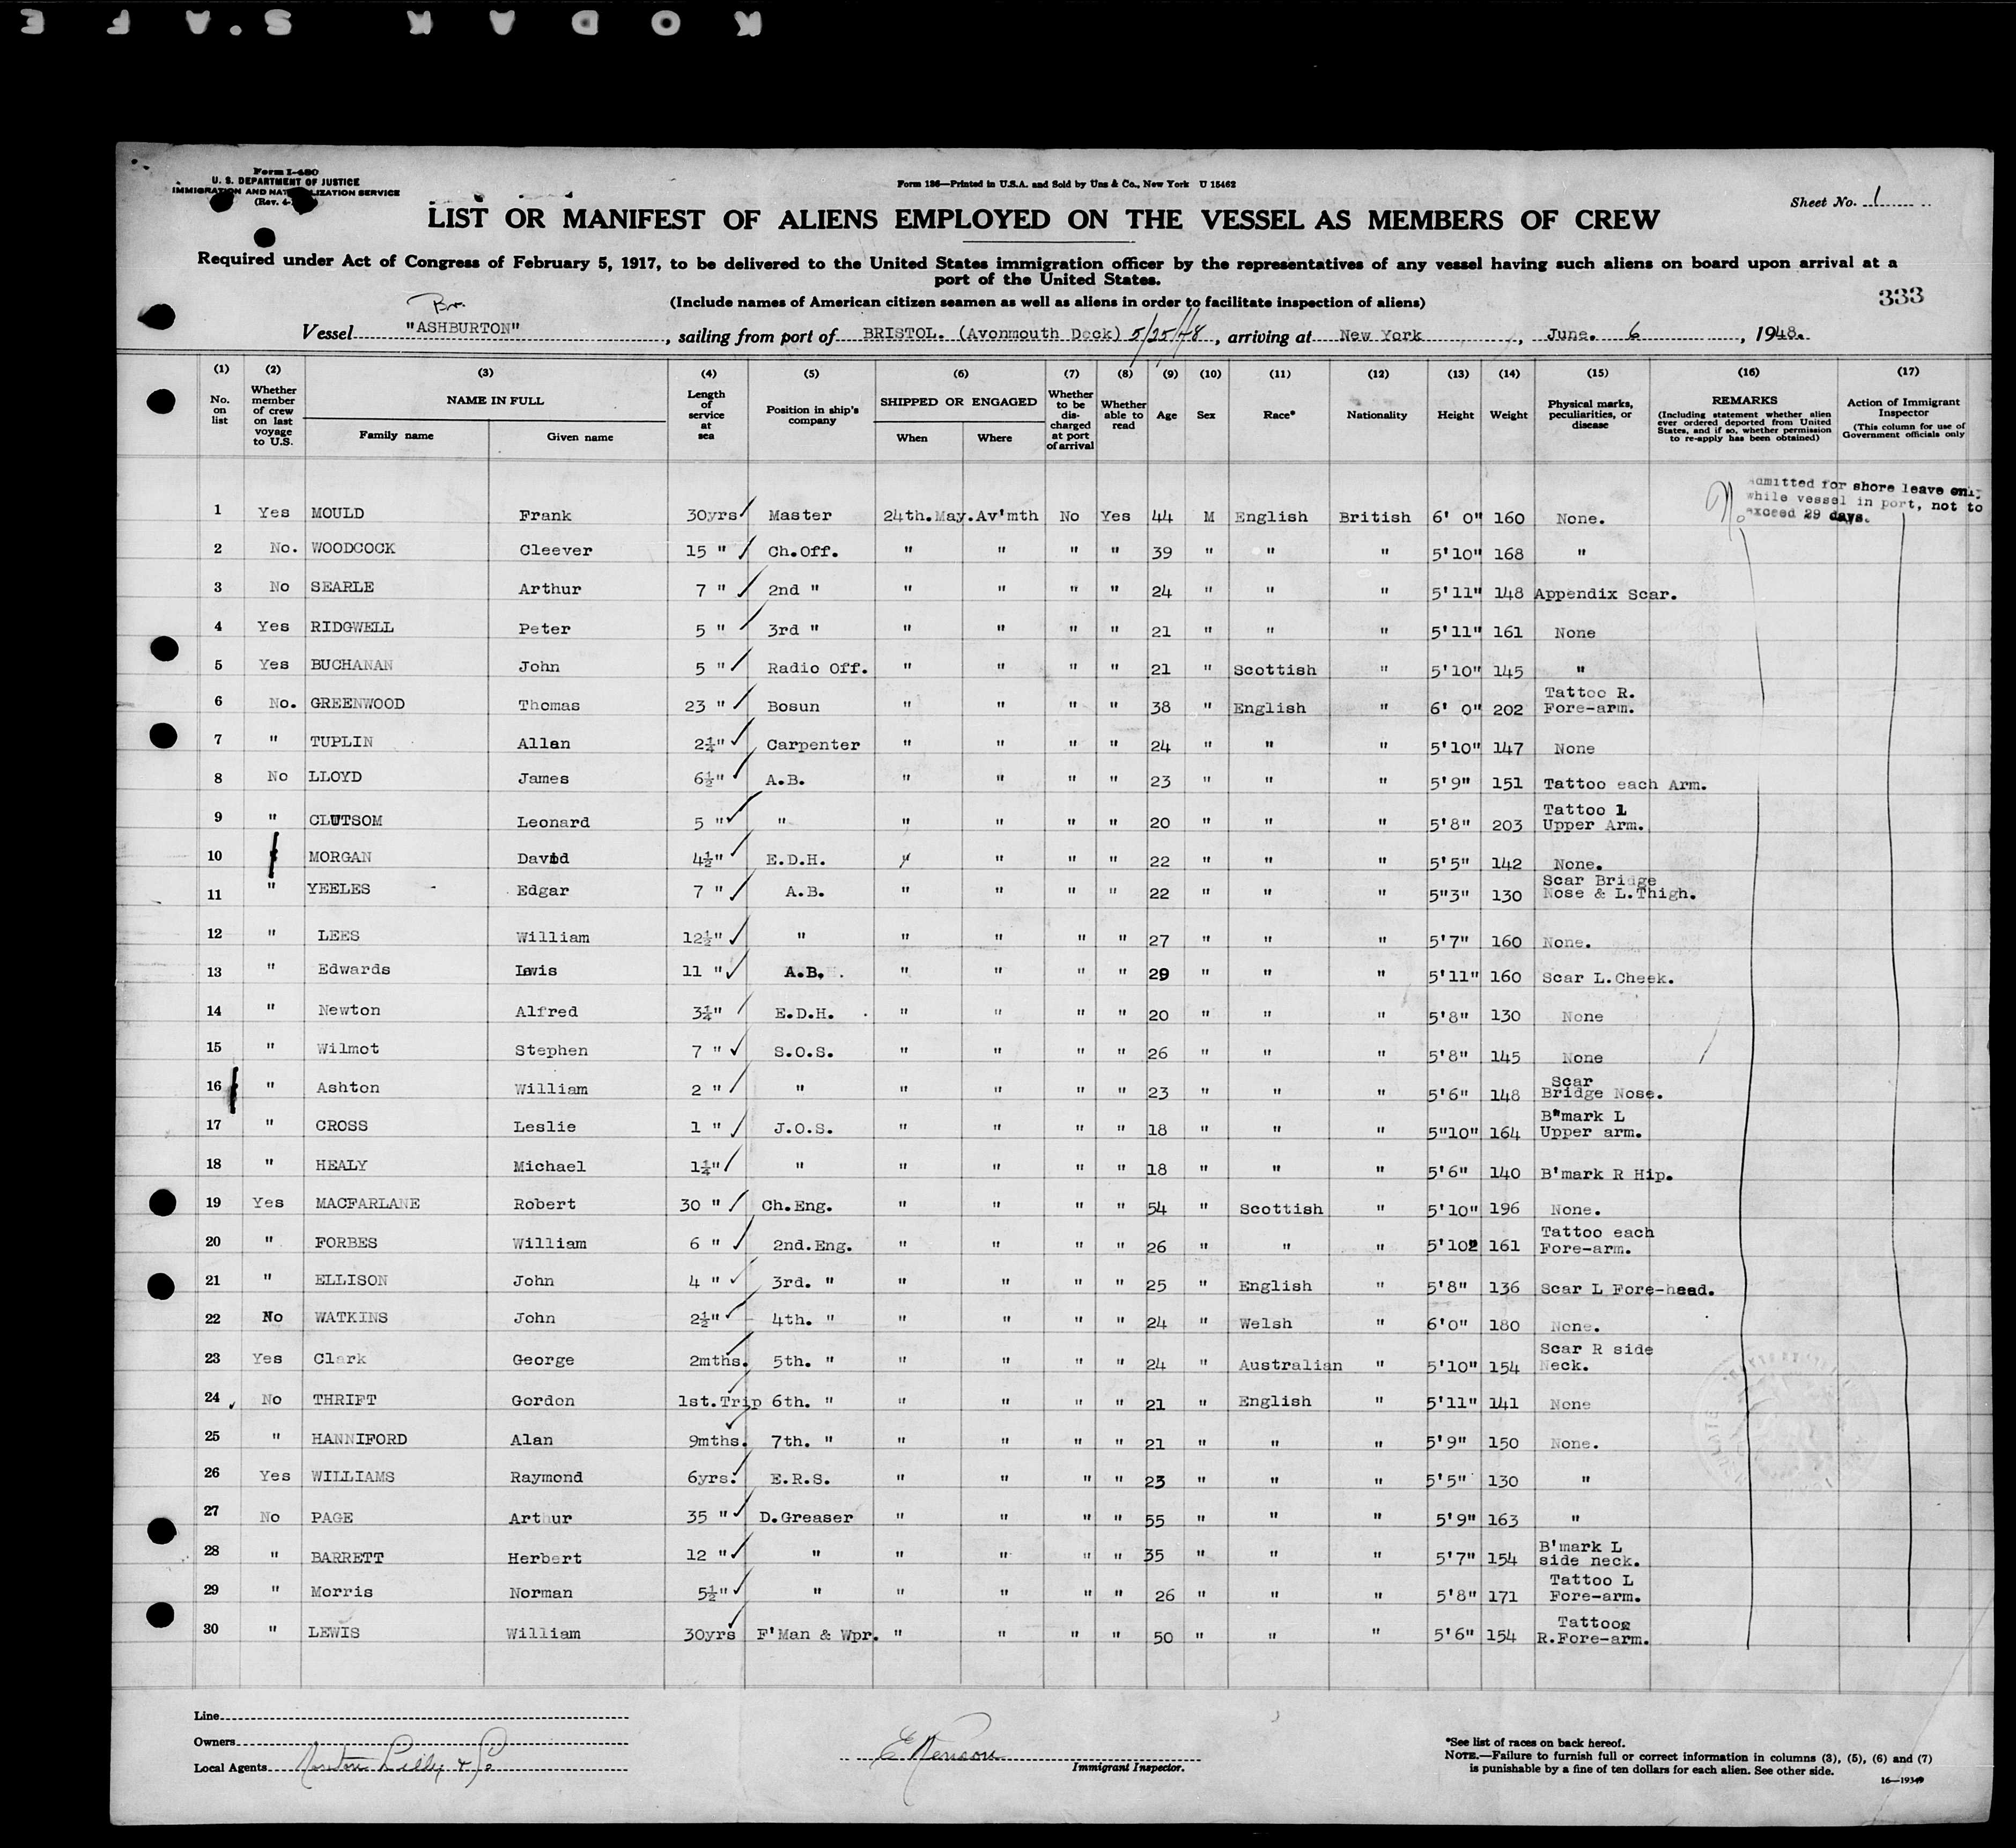 KODAK S.A.F E
Form I-480
U. S. DEPARTMENT OF JUSTICE
IMMIGRATION AND NATURALIZATION SERVICE
(Rev. 4-
Form 136—Printed in U.S.A. and Sold by Unz & Co., New York U 15462
Sheet No. 1
LIST OR MANIFEST OF ALIENS EMPLOYED ON THE VESSEL AS MEMBERS OF CREW
Required under Act of Congress of February 5, 1917, to be delivered to the United States immigration officer by the representatives of any vessel having such aliens on board upon arrival at a
port of the United States.
(Include names of American citizen seamen as well as aliens in order to facilitate inspection of aliens)
333
Br.
Vessel "ASHBURTON", sailing from port of BRISTOL. (Avonmouth Dock) 5/25/48, arriving at New York, June. 6, 1948.
(1) (2) (3) (4) (5) (6) (7) (8) (9) (10) (11) (12) (13) (14) (15) (16) (17)
No. on list
Whether member of crew on last voyage to U.S.
NAME IN FULL
Family name Given name
Length of service at sea
Position in ship's company
SHIPPED OR ENGAGED
When Where
Whether to be discharged at port of arrival
Whether able to read
Age
Sex
Race*
Nationality
Height
Weight
Physical marks, peculiarities, or disease
REMARKS
(Including statement whether alien ever ordered deported from United States, and if so, whether permission to re-apply has been obtained)
Action of Immigrant Inspector
(This column for use of Government officials only
admitted for shore leave only
while vessel in port, not to
exceed 29 days.
1 Yes MOULD Frank 30yrs Master 24th.May. Av'mth No Yes 44 M English British 6' 0" 160 None.
2 No. WOODCOCK Cleever 15 " Ch.Off. " " " " 39 " " " 5'10" 168 "
3 No SEARLE Arthur 7 " 2nd " " " " " 24 " " " 5'11" 148 Appendix Scar.
4 Yes RIDGWELL Peter 5 " 3rd " " " " " 21 " " " 5'11" 161 None
5 Yes BUCHANAN John 5 " Radio Off. " " " " 21 " Scottish " 5'10" 145 "
6 No. GREENWOOD Thomas 23 " Bosun " " " " 38 " English " 6' 0" 202 Tattoo R. Fore-arm.
7 " TUPLIN Allan 2¼" Carpenter " " " " 24 " " " 5'10" 147 None
8 No LLOYD James 6½" A.B. " " " " 23 " " " 5'9" 151 Tattoo each Arm.
9 " CLUTSOM Leonard 5 " " " " " " 20 " " " 5'8" 203 Tattoo L Upper Arm.
10 " MORGAN David 4½" E.D.H. " " " " 22 " " " 5'5" 142 None.
11 " YEELES Edgar 7 " A.B. " " " " 22 " " " 5"3" 130 Scar Bridge Nose & L.Thigh.
12 " LEES William 12½" " " " " " 27 " " " 5'7" 160 None.
13 " Edwards Lewis 11 " A.B. " " " " 29 " " " 5'11" 160 Scar L.Cheek.
14 " Newton Alfred 3¼" E.D.H. " " " " 20 " " " 5'8" 130 None
15 " Wilmot Stephen 7 " S.O.S. " " " " 26 " " " 5'8" 145 None
16 " Ashton William 2 " " " " " " 23 " " " 5'6" 148 Scar Bridge Nose.
17 " CROSS Leslie 1 " J.O.S. " " " " 18 " " " 5"10" 164 B"mark L Upper arm.
18 " HEALY Michael 1¼" " " " " " 18 " " " 5'6" 140 B'mark R Hip.
19 Yes MACFARLANE Robert 30 " Ch.Eng. " " " " 54 " Scottish " 5'10" 196 None.
20 " FORBES William 6 " 2nd.Eng. " " " " 26 " " " 5'10" 161 Tattoo each Fore-arm.
21 " ELLISON John 4 " 3rd. " " " " " 25 " English " 5'8" 136 Scar L Fore-head.
22 No WATKINS John 2½" 4th. " " " " " 24 " Welsh " 6'0" 180 None.
23 Yes Clark George 2mths. 5th. " " " " " 24 " Australian " 5'10" 154 Scar R side Neck.
24 No THRIFT Gordon 1st.Trip 6th. " " " " " 21 " English " 5'11" 141 None
25 " HANNIFORD Alan 9mths. 7th. " " " " " 21 " " " 5'9" 150 None.
26 Yes WILLIAMS Raymond 6yrs. E.R.S. " " " " 23 " " " 5'5" 130 "
27 No PAGE Arthur 35 " D.Greaser " " " " 55 " " " 5'9" 163 "
28 " BARRETT Herbert 12 " " " " " " 35 " " " 5'7" 154 B'mark L side neck.
29 " Morris Norman 5½" " " " " " 26 " " " 5'8" 171 Tattoo L Fore-arm.
30 " LEWIS William 30yrs F'Man & Wpr. " " " " 50 " " " 5'6" 154 Tattoos R.Fore-arm.
Line
Owners
Local Agents Norton Lilly & Co
Immigrant Inspector.
*See list of races on back hereof.
NOTE.—Failure to furnish full or correct information in columns (3), (5), (6) and (7)
is punishable by a fine of ten dollars for each alien. See other side.
16—19349